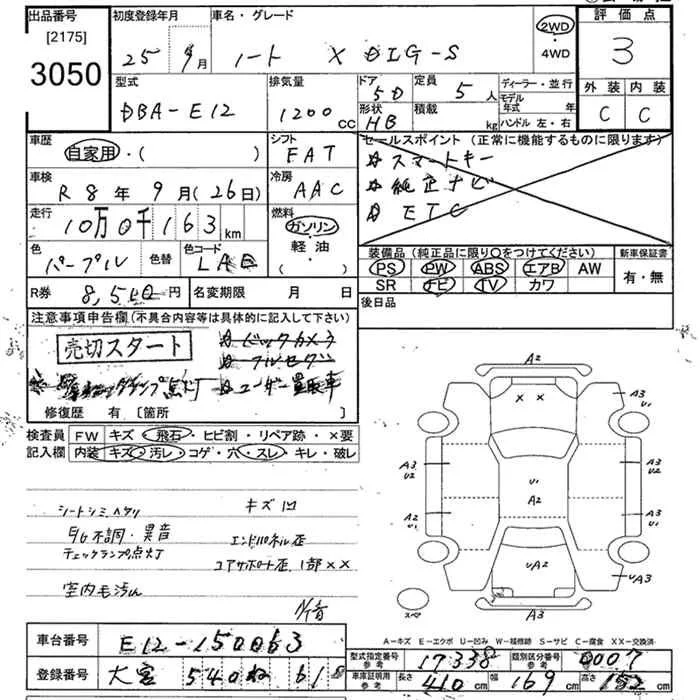 出品番号
[2175]
3050
初度登録年月
25年 9月
車名・グレード
ノート X DIG-S
2WD
・
4WD
評価点
3
外装 内装
C C
型式
DBA-E12
排気量
1200 CC
ドア 5D
形状 HB
定員 5人
積載 kg
ディーラー・並行
モデル年式 年
ハンドル 左・右
車歴
自家用・( )
シフト
FAT
車検
R8年9月(26日)
冷房
AAC
走行
10万0千163km
燃料
ガソリン・
軽油・
( )
色
パープル
色替
色コード
LAE
セールスポイント(正常に機能するものに限ります)
☆スマートキー
☆純正ナビ
☆ETC
装備品(純正品に限り○をつけてください)
PS PW ABS エアB AW
SR ナビ TV カワ
新車保証書
有・無
R券 8,540円
名変期限 月 日
後日品
注意事項申告欄(不具合内容等は具体的に記入して下さい)
売切スタート
☆バックカメラ
☆フルセグ
ランプ点灯 ☆ユーザー買取車
修復歴 有 〔箇所 〕
検査員 FW キズ・飛石・ヒビ割・リペア跡・×要
記入欄 内装 キズ・汚レ・コゲ・穴・スレ・キレ・破レ
シートシミ、ヘタリ
キズ凹
E/G不調・異音
チェックランプ点灯
エンドパネル歪
コアサポート歪、1部××
室内毛汚れ
A2
A3
U1
× ×
A3
U2
A3
U2
U1
A2
A2
U1
A3
U1
UA2
UA3
スペア
A3
A-キズ E-エクボ U-凹ミ W-補修跡 S-サビ C-腐食 XX-交換済
車台番号 E12-150063
登録番号 大宮 540 ね 618
型式指定番号 参考 17338
類別区分番号 参考 0007
車庫証明用 参考 長さ 410cm 幅 169cm 高さ 152cm